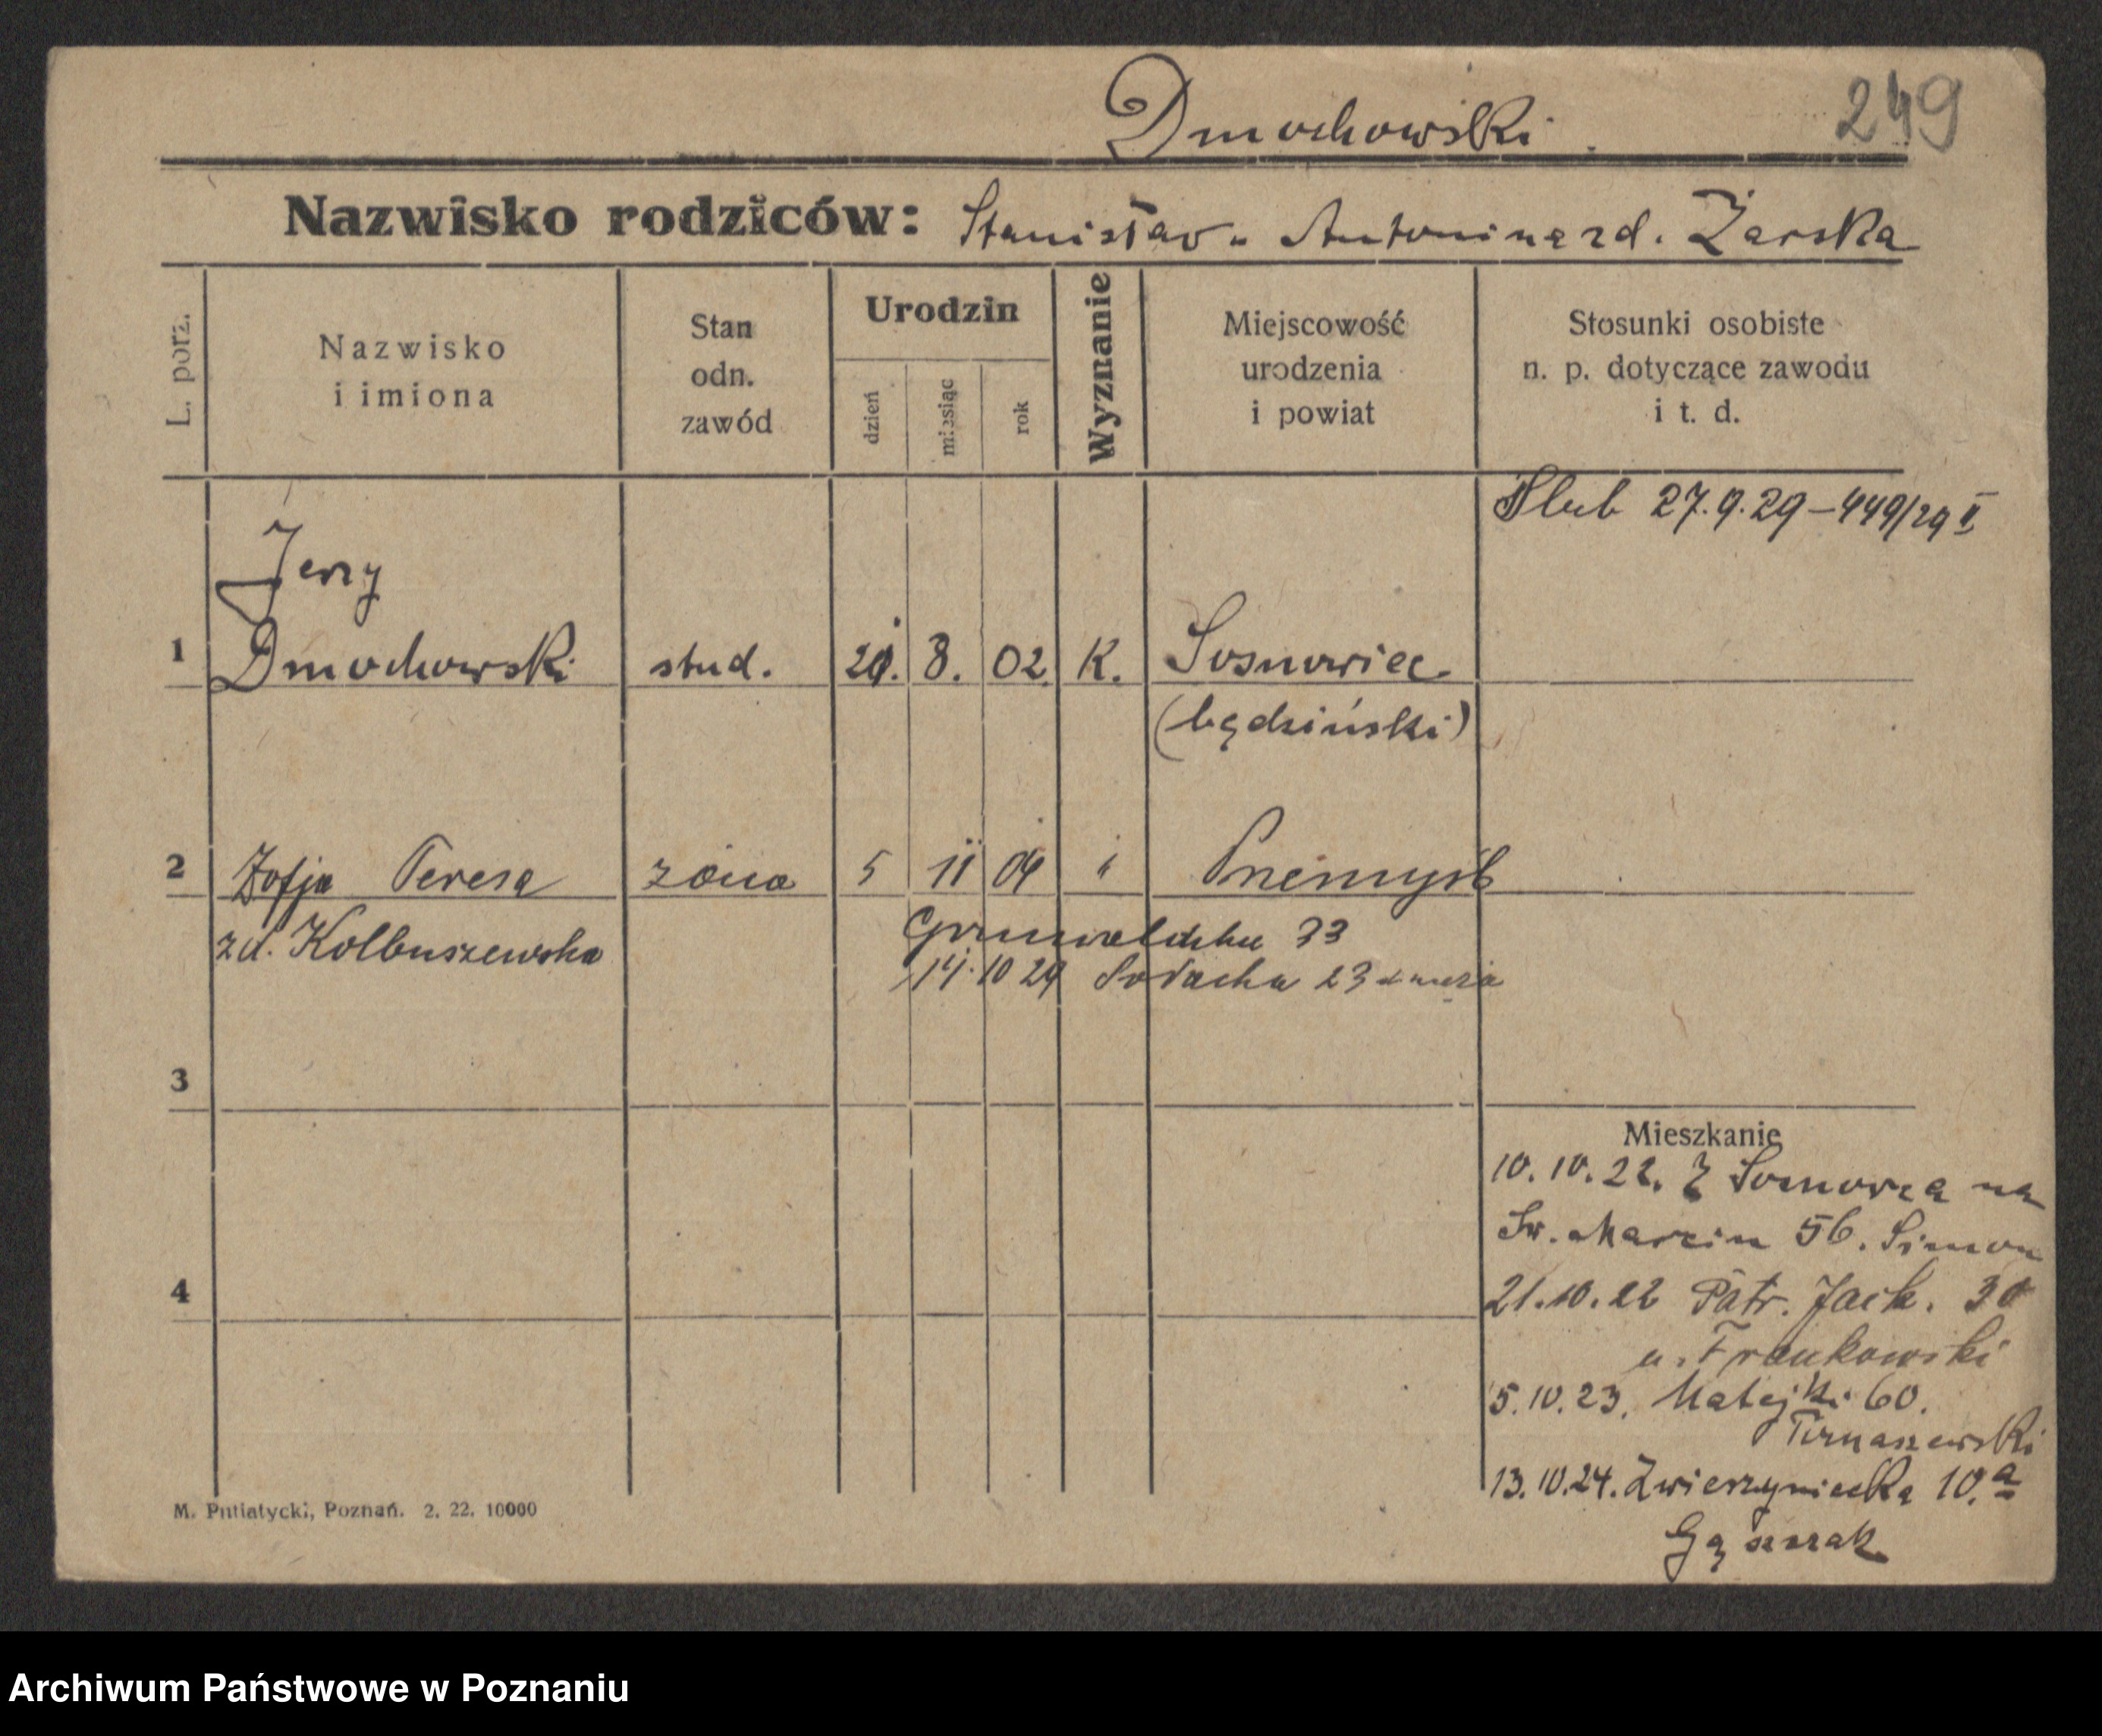 Dmochowski.
249
Nazwisko rodziców: Stanisław u Antonina zd. Żarska
L. porz.
Nazwisko
i imiona
Stan
odn.
zawód
Urodzin
dzień
miesiąc
rok
Wyznanie
Miejscowość
urodzenia
i powiat
Stosunki osobiste
n. p. dotyczące zawodu
i t. d.
Ślub 27.9.29 – 449/29 II
Jerzy
1 Dmochowski stud. 8. 02. K. Sosnowiec
(będziński)
2 Zofja Teresa żona 5 11 04 " Przemyśl
zd. Kolbuszewska
Grunwaldzka 33
14.10 29 Sołacka 23 z męża
3
Mieszkanie
10.10.22. Z Sosnowca na
Św. Marcin 56. Simon
4
21.10.22 Patr. Jack. 30
u. Frankowski
5.10.23. Matejki 60.
13.10.24. Zwierzyniecka 10.a
Gąszczak
M. Putiatycki, Poznań. 2. 22. 10000
Archiwum Państwowe w Poznaniu